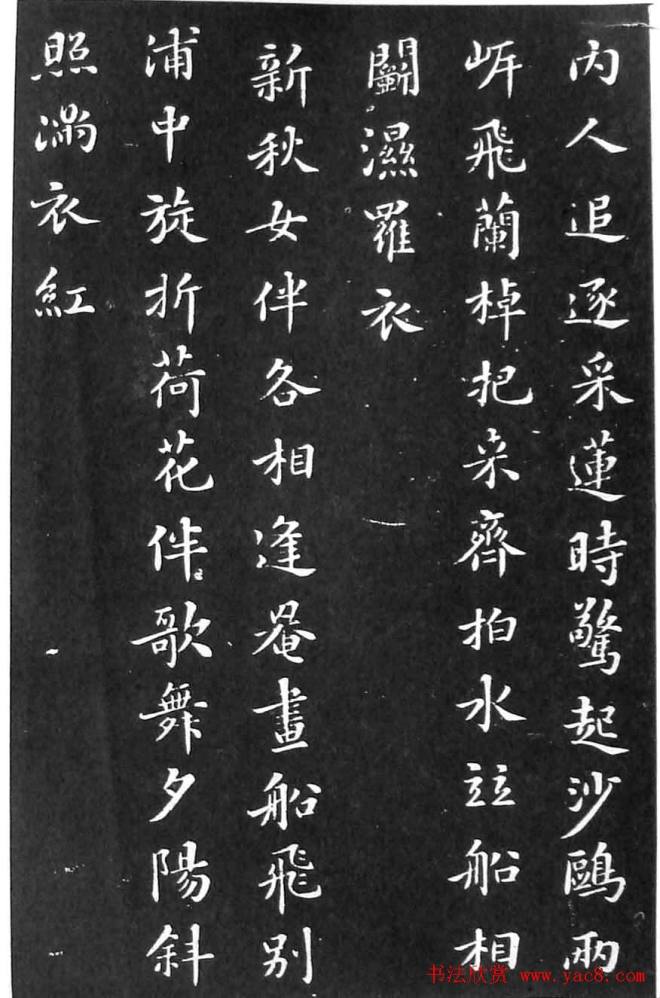 内人追逐采蓮時驚起沙鷗兩
岍飛蘭棹把来齊拍水竝船相
鬭濕羅衣
新秋女伴各相逢罨畫船飛别
浦中旋折荷花伴歌舞夕陽斜
照滿衣紅
书法欣赏 www.yac8.com